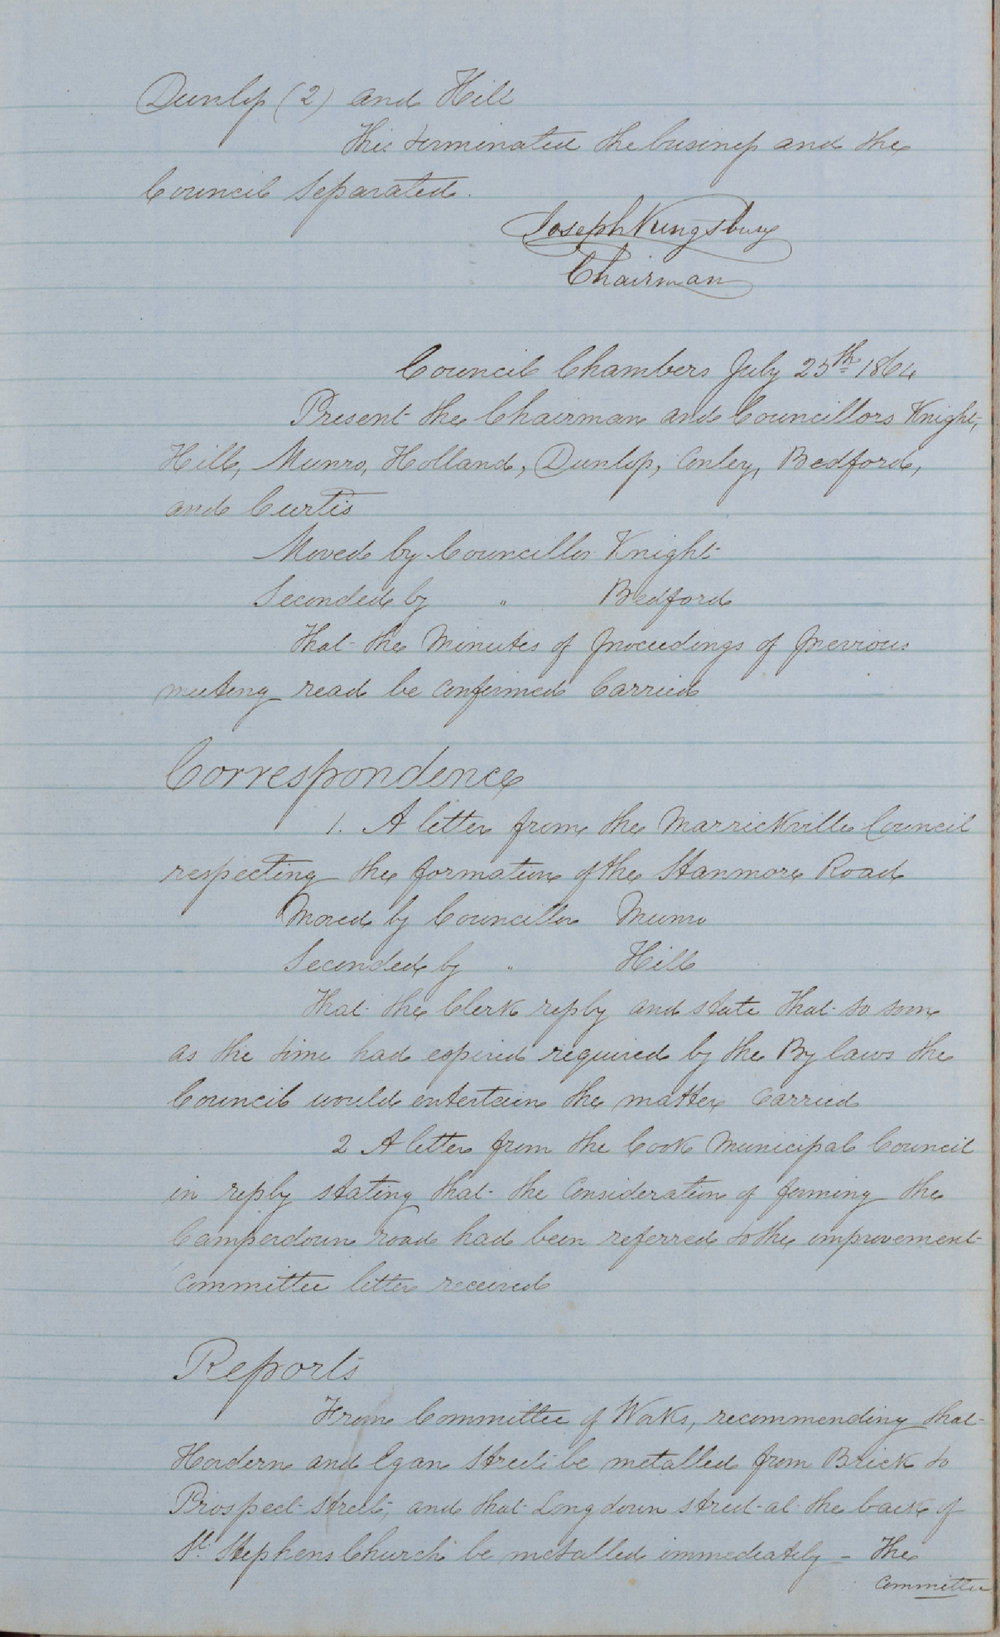 Dunlop (2) and Hill
This terminated the business and the
Council Separated.
Joseph Kingsbury
Chairman
Council Chambers July 25th 1864
Present the Chairman and Councillors Knight,
Hill, Munro, Holland, Dunlop, Conley, Bedford,
and Curtis
Moved by Councillor Knight
Seconded by " Bedford
That the Minutes of proceedings of previous
meeting read be confirmed Carried
Correspondence
1. A letter from the Marrickville Council
respecting the formation of the Stanmore Road
Moved by Councillor Munro
Seconded by " Hill
That the Clerk reply and state that so soon
as the time had expired required by the By laws the
Council would entertain the matter Carried
2 A letter from the Cook Municipal Council
in reply stating that the Consideration of forming the
Camperdown road had been referred to the improvement
committee letter received
Reports
From Committee of Works, recommending that
Hordern and Egan Streets be metalled from Brick to
Prospect Street, and that Longdown street at the back of
St. Stephens Church be metalled immediately - The
Committee